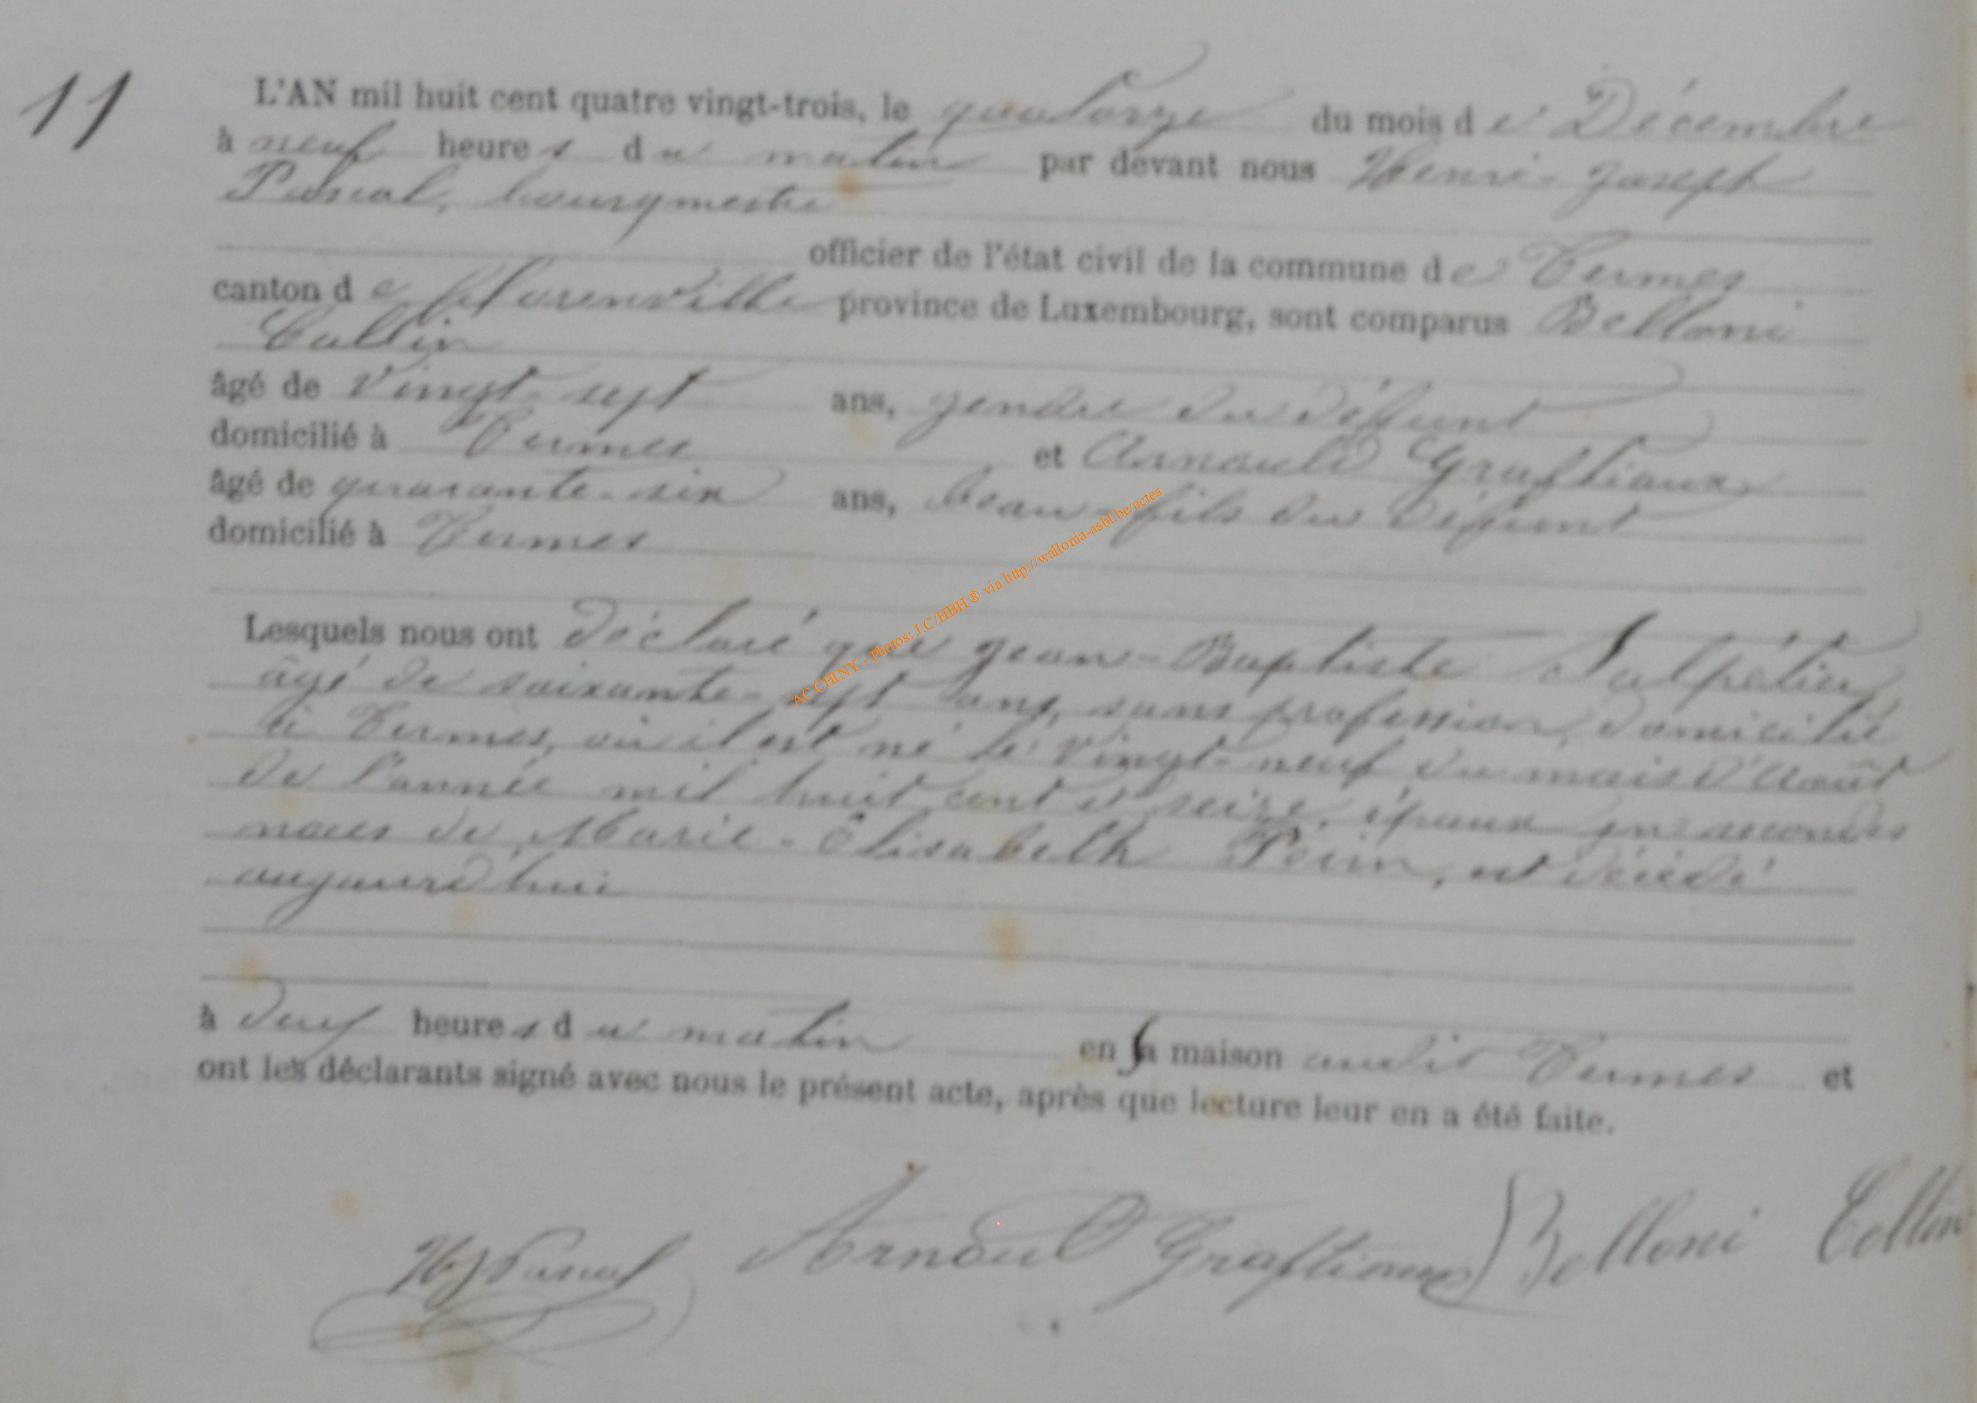 11
L'AN mil huit cent quatre vingt-trois, le quatorze du mois de Décembre
à neuf heures du matin par devant nous Henri-Joseph
Pascal, bourgmestre
officier de l'état civil de la commune de Termes
canton de Florenville province de Luxembourg, sont comparus Belloni
Collin
âgé de vingt-sept ans, gendre du défunt
domicilié à Termes et Arnould Graftiaux
âgé de quarante-six ans, beau-fils du défunt
domicilié à Termes
Lesquels nous ont déclaré que Jean-Baptiste Salpétier,
âgé de soixante-sept ans, sans profession, domicilié
à Termes, où il est né le vingt-neuf du mois d'Août
de l'année mil huit cent et seize, époux en secondes
noces de Marie-Élisabeth Perin, est décédé
aujourd'hui
à deux heures du matin en sa maison audit Termes et
ont les déclarants signé avec nous le présent acte, après que lecture leur en a été faite.
HJ Pascal Arnould Graftiaux Belloni Collin
AC CHINY - Photos: J.C/HBH ® via http://wallonia-asbl.be/actes